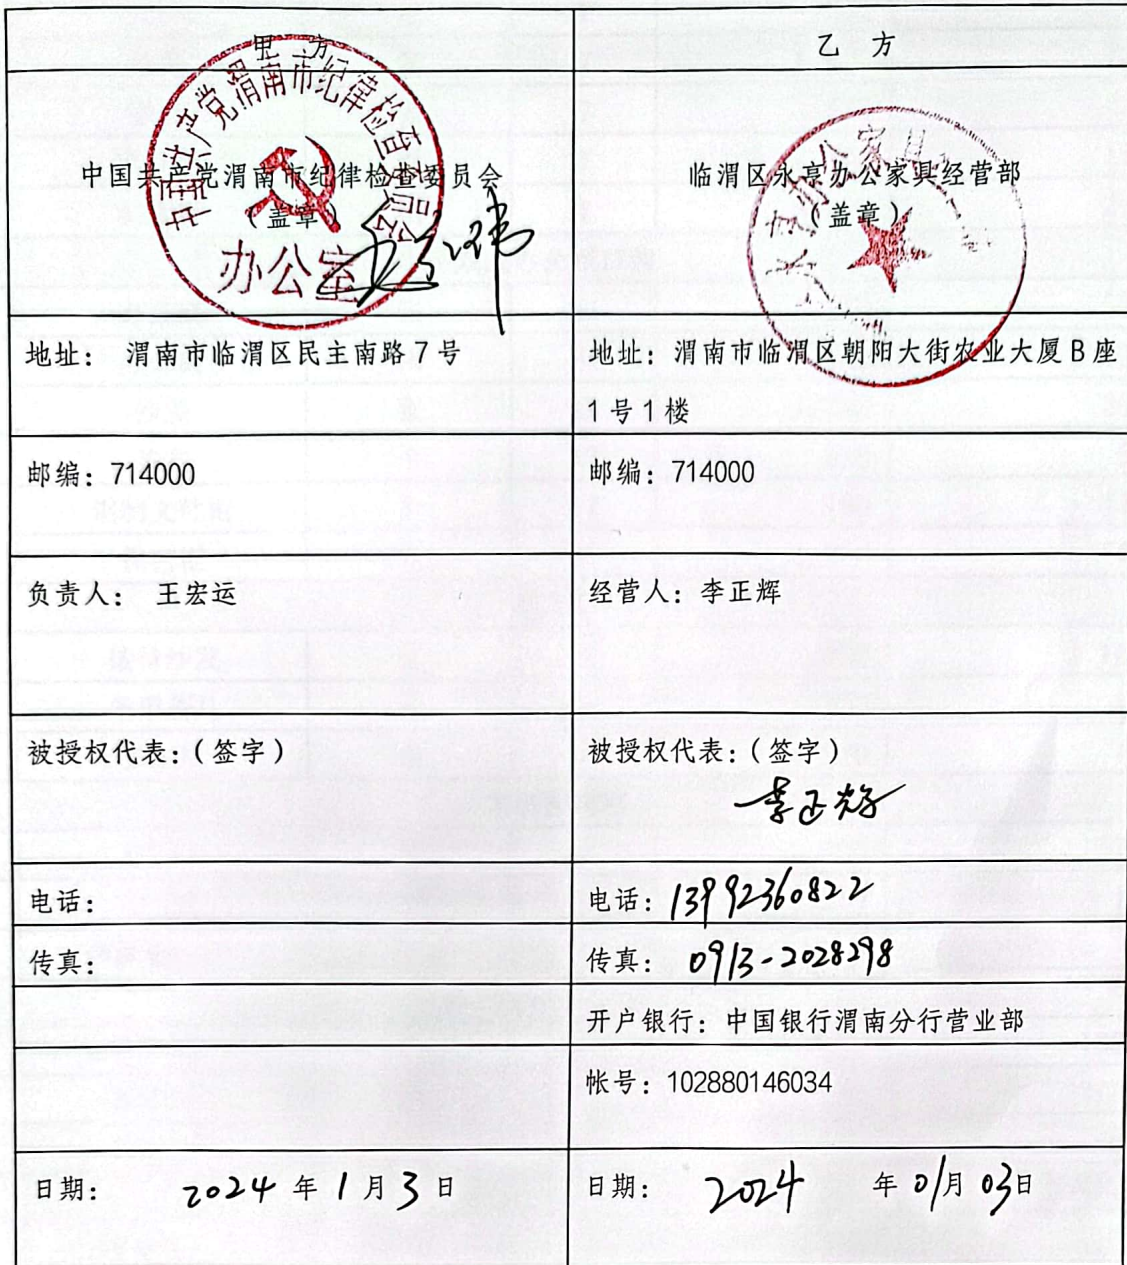 甲 方
乙 方
中国共产党渭南市纪律检查委员会
中国共产党渭南市纪律检查委员会
(盖章)
办公室
临渭区永京办公家具经营部
(盖章)
地址: 渭南市临渭区民主南路7号
地址: 渭南市临渭区朝阳大街农业大厦B座
1号1楼
邮编: 714000
邮编: 714000
负责人: 王宏运
经营人: 李正辉
被授权代表:(签字)
被授权代表:(签字)
李正辉
电话:
电话: 13992360822
传真:
传真: 0913-2028298
开户银行: 中国银行渭南分行营业部
帐号: 102880146034
日期: 2024 年 1 月 3 日
日期: 2024 年 01 月 03 日